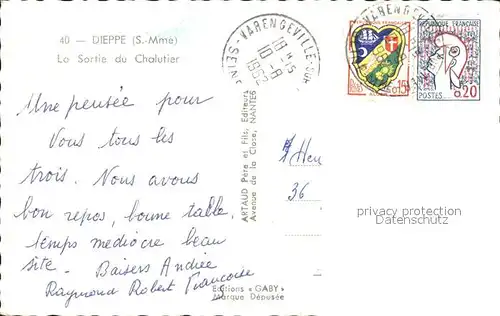 40 - DIEPPE (S.-Mme)
La Sortie du Chalutier
Une pensée pour
Vous tous les
trois. Nous avons
bon repos, bonne table
temps médiocre beau
site. Baisers Andrée
Raymond Robert Francoise
ARTAUD Père et Fils, Editeurs
Avenue de la Close, NANTES
Editions « GABY »
Marque Déposée
VARENGEVILLE-SUR
SEINE
18 H 15
10-8
1962
0,15
REPUBLIQUE FRANÇAISE
POSTES
0,20
36
privacy protection
DATENSCHUTZ